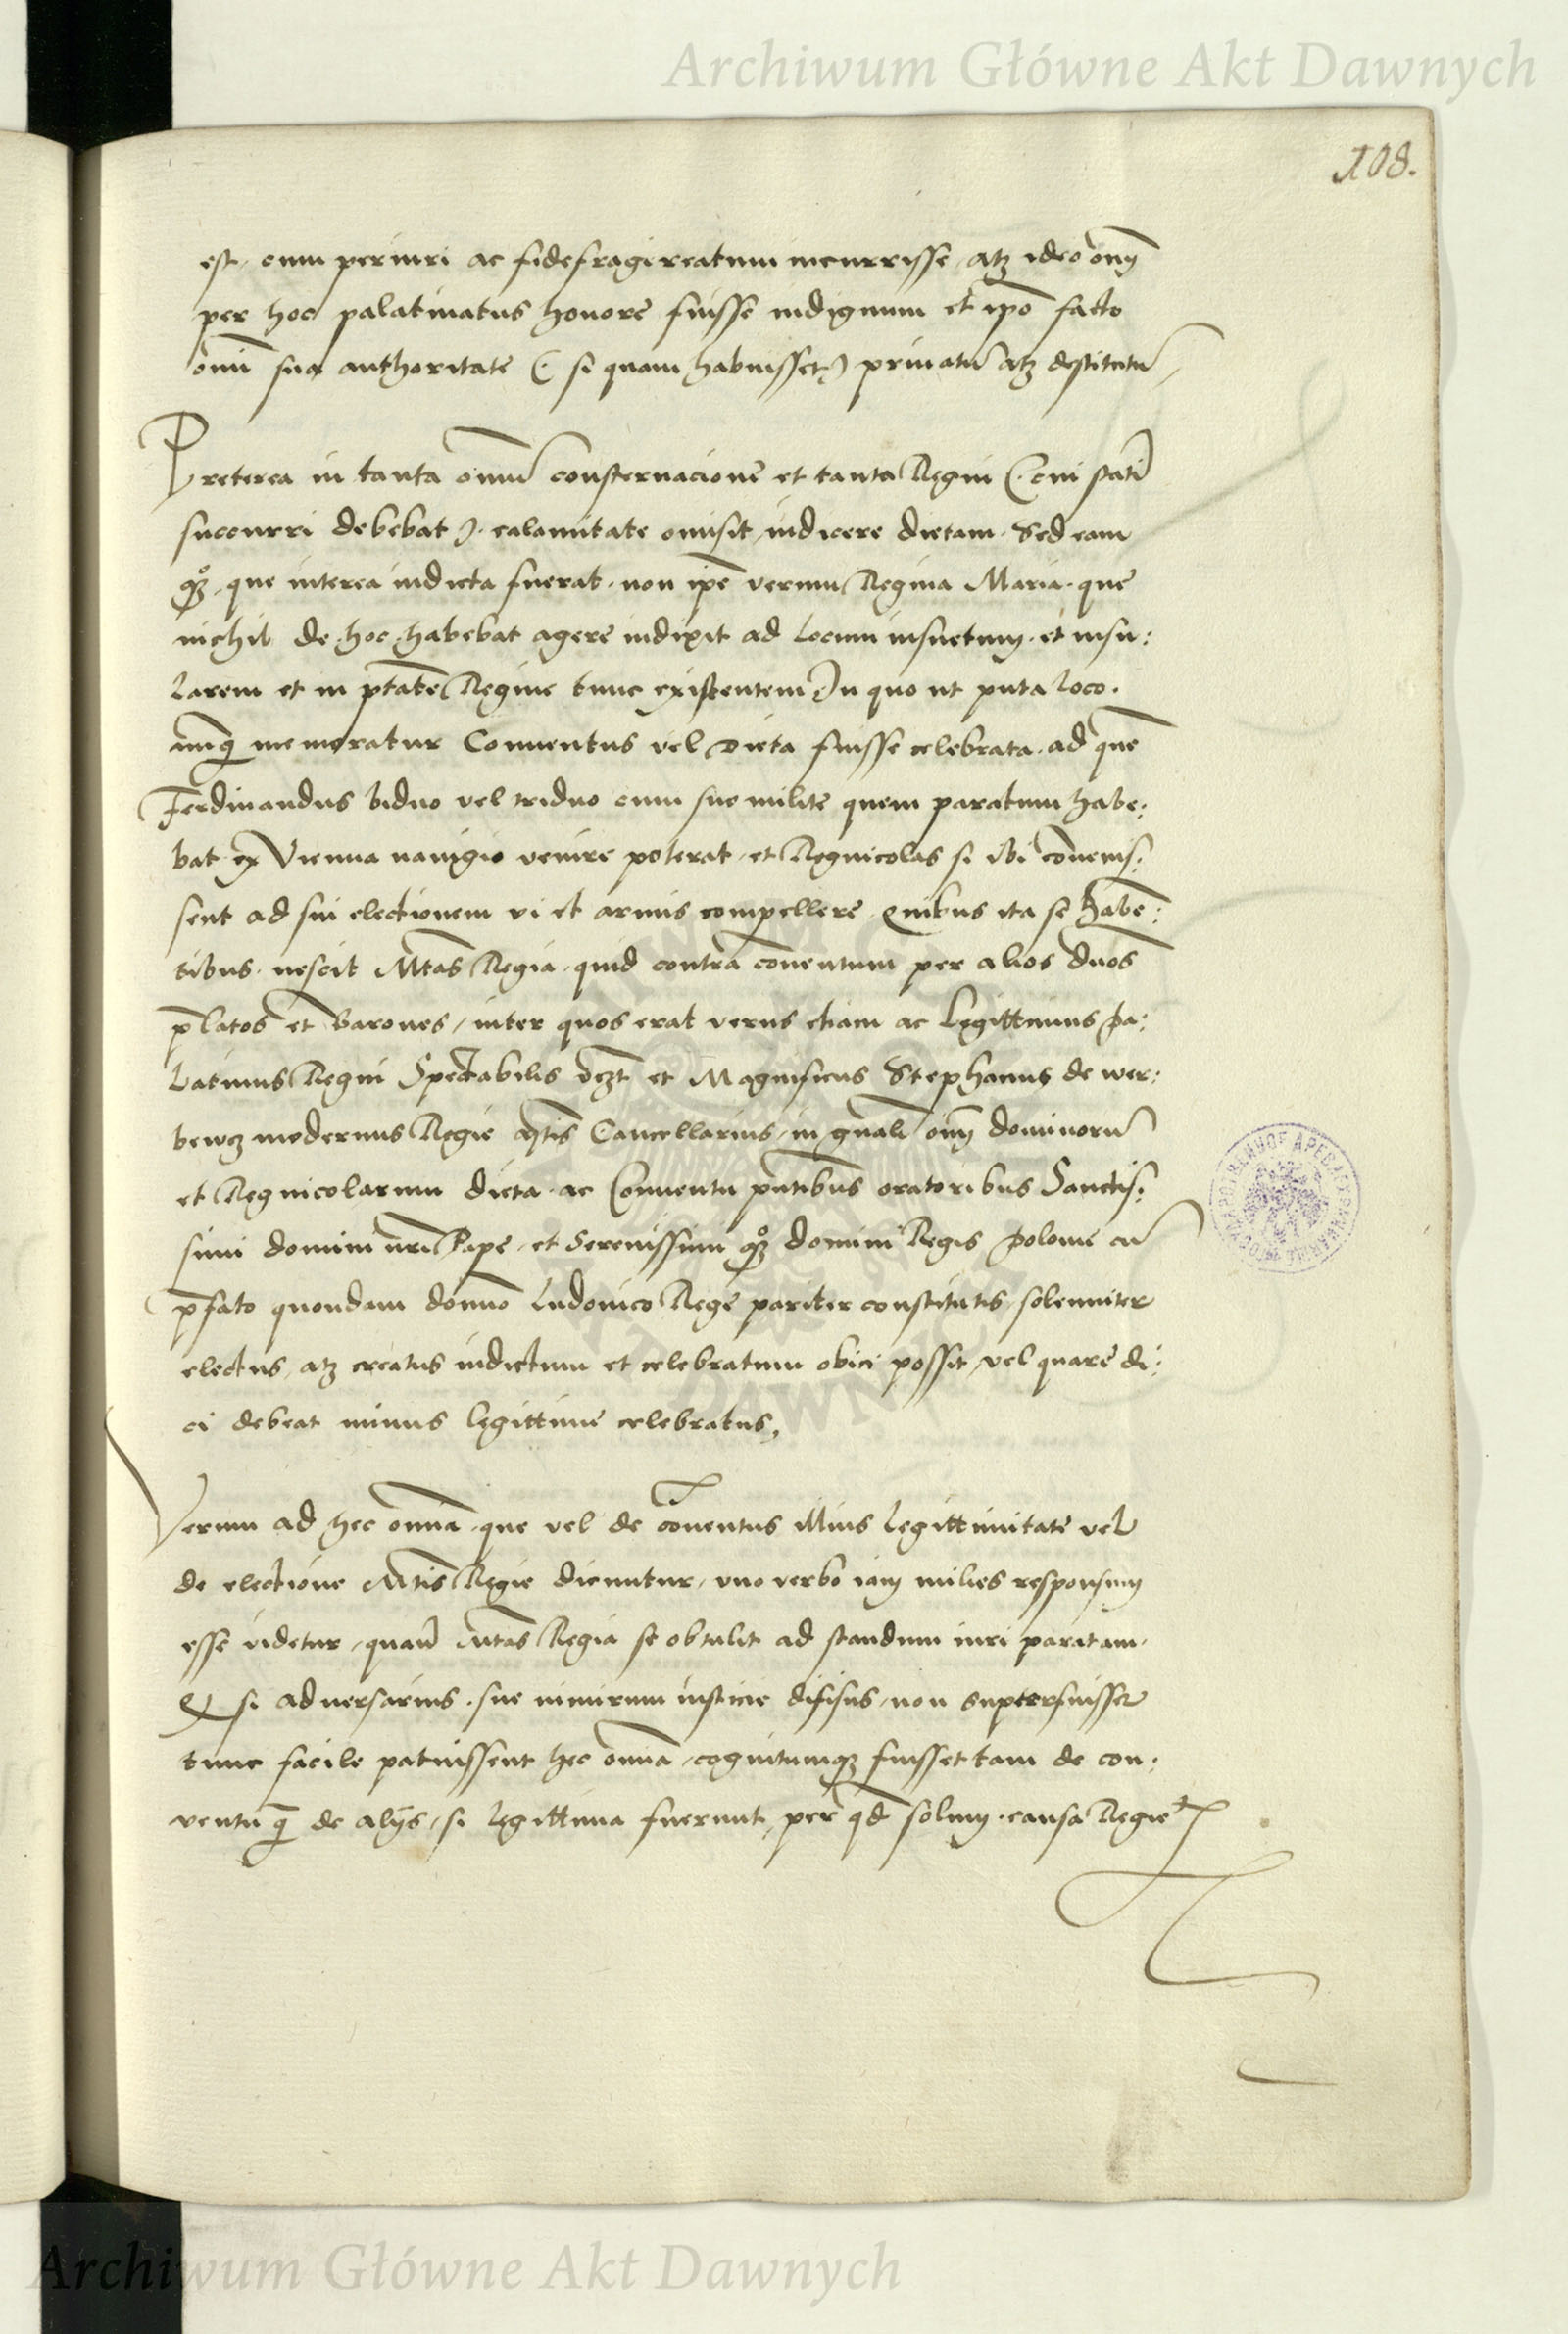 Archiwum Główne Akt Dawnych
108.
est, eum periuri ac fidefragi reatum incurrisse, atqꝫ ideo om̄
per hoc palatinatus honore fuisse indignum et ip̄o facto
om̄i sua authoritate (. si quam habuisset .) priuatū atqꝫ destitutū,
Preterea in tanta om̄iū consternacione et tanta Regni (. cui stati͂
succurri debebat .) calamitate omisit, indicere dietam. Sed eam
qꝫ, que interea indicta fuerat. non ip̄e verum Regina Maria. que
nichil de hoc habebat agere indixit ad locum insuetum. et insu:
larem et in p̄tāte Regine tunc existentem In quo ut puta loco.
nunq̄ memoratur Conuentus vel dieta fuisse celebrata. ad que͂
Ferdinandus biduo vel triduo cum suo milite quem paratum habe:
bat ex Vienna nauigio venire poterat, et Regnicolas si ibi co͂uenis:
sent ad sui electionem vi et armis compellere. Quibus ita se habe͂:
tibus. nescit Mtas Regia, quid contra co͂uentum per alios dn̄os
p̄latos et Barones, inter quos erat verus etiam ac legittimus Pa:
latinus Regni Spectabilis vꝫt et Magnificus Stephanus de wer:
bewcz modernus Regie Mtis Cancellarius, in gn̄ali om̄ dominorū
et Regnicolarum dieta ac Conuentu p̄ntibus oratoribus Sanctis:
simi domini nr̄i Pape, et Serenissimi qꝫ domini Regis Polonie cū
p̄fato quondam domino Ludouico Rege pariter constitutis, solenniter
electus, atqꝫ creatus indictum et celebratum obici possit, vel quare di:
ci debeat minus legittime celebratus,
Verum ad hec om̄ia que vel de co͂uentus illius legittimitate vel
de electione Mtis Regie dicuntur, vno verbo iam milies responsum
esse videtur, quan̄ Mtas Regia se obtulit ad standum iuri paratam.
Q si aduersarius. sue nimirum insticie difisus, non supterfuisset
tunc facile patuissent hec om̄ia, cognitumqꝫ fuisset tam de con:
uentu q̄ de alijs, si legittima fuerunt, per qd̄ solum. causa Regie
Archiwum Główne Akt Dawnych